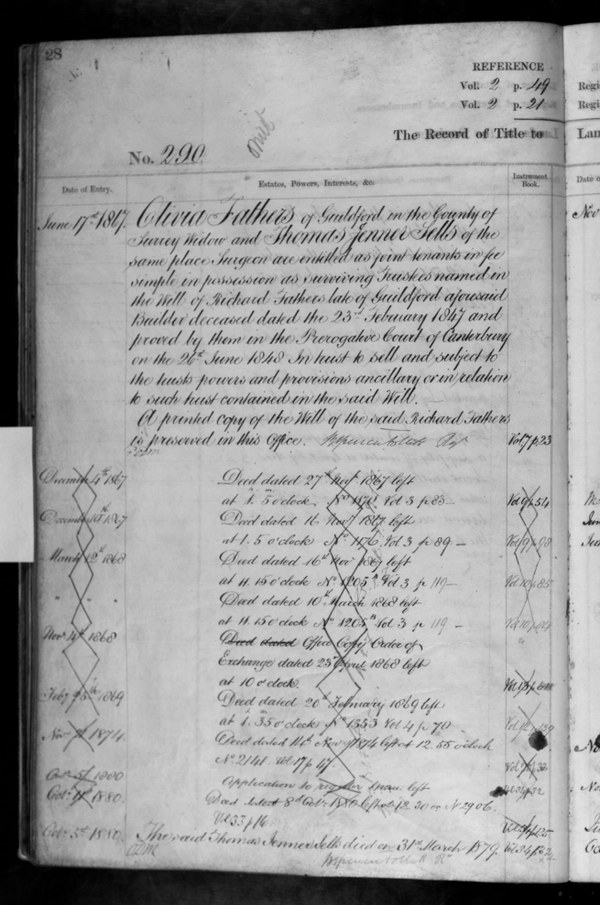 28
REFERENCE
Vol. 2 p. 49
Vol. 2 p. 21
Regi
Regi
The Record of Title to
Lan
No. 290
Date of Entry.
Estates, Powers, Interests, &c.
Instrument Book.
Date o
June 17th 1867. Olivia Fathers of Guildford in the County of
Nov
Surrey Widow and Thomas Jenner Sells of the
same place Surgeon are entitled as joint tenants in fee
simple in possession as surviving Trustees named in
the Will of Richard Fathers late of Guildford aforesaid
Builder deceased dated the 23rd February 1847 and
proved by them in the Prerogative Court of Canterbury
on the 26th June 1848 In trust to sell and subject to
the trusts powers and provisions ancillary or in relation
to such trust contained in the said Will. —
A printed copy of the Will of the said Richard Fathers
is preserved in this Office. Vol 7 p 23
December 4th 1867 Deed dated 27th Novr 1867 left
at 1. 5 o'clock Vol 3 p 83 — Vol 9 p 54
1867 Deed dated 11 Novr 1867 left
at 1. 5 o'clock No 1176 Vol 3 p 89 —
March 12th 1868 Deed dated 16th Nov 1867 left
at 11. 15 o'clock No 1205 Vol 3 p 119 — Vol 10 p 85
" " Deed dated 10th March 1868 left
at 11. 15 o'clock No 1205a Vol 3 p 119 —
Nov 14th 1868 Deed dated Office Copy Order of
Exchange dated 1868 left
at 10 o'clock.
Feby 25th 1869 Deed dated 20th February 1869 left
at 1. 35 o'clock No 1353 Vol 4 p 70 —
1874 Deed dated 14th Novr 1874 left at 12. 55 o'clock
No 2141 Vol 17 p 47
1880 Application to left
1880. Deed dated 8th Octr 1880 left at 12. 30 No 2906.
Vol 33 p 16
Octr 5th 1880. The said Thomas Jenner Sells died on 31st March 1879.